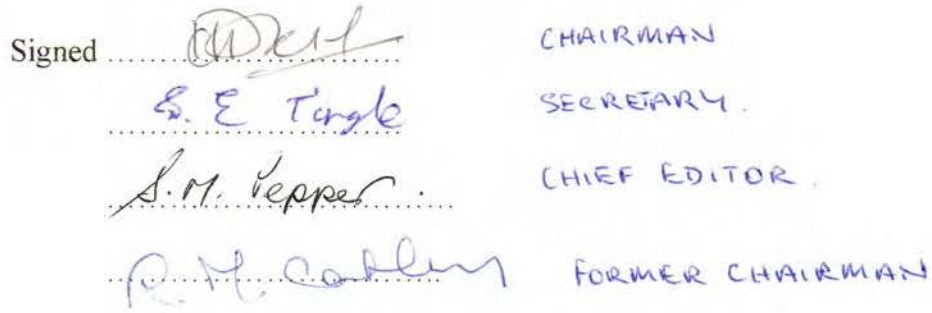 Signed CHAIRMAN
S. E Tingle SECRETARY.
S. M. Pepper. CHIEF EDITOR.
R. M. FORMER CHAIRMAN